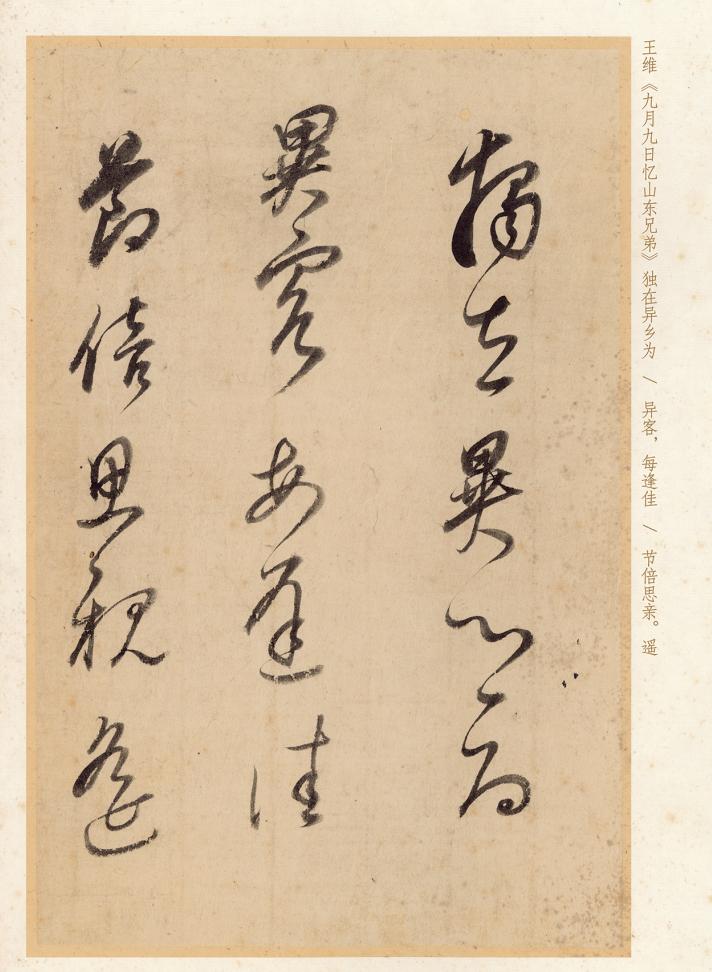 王维《九月九日忆山东兄弟》独在异乡为 \ 异客，每逢佳 \ 节倍思亲。遥
獨在異鄉為
異客每逢佳
節倍思親遙